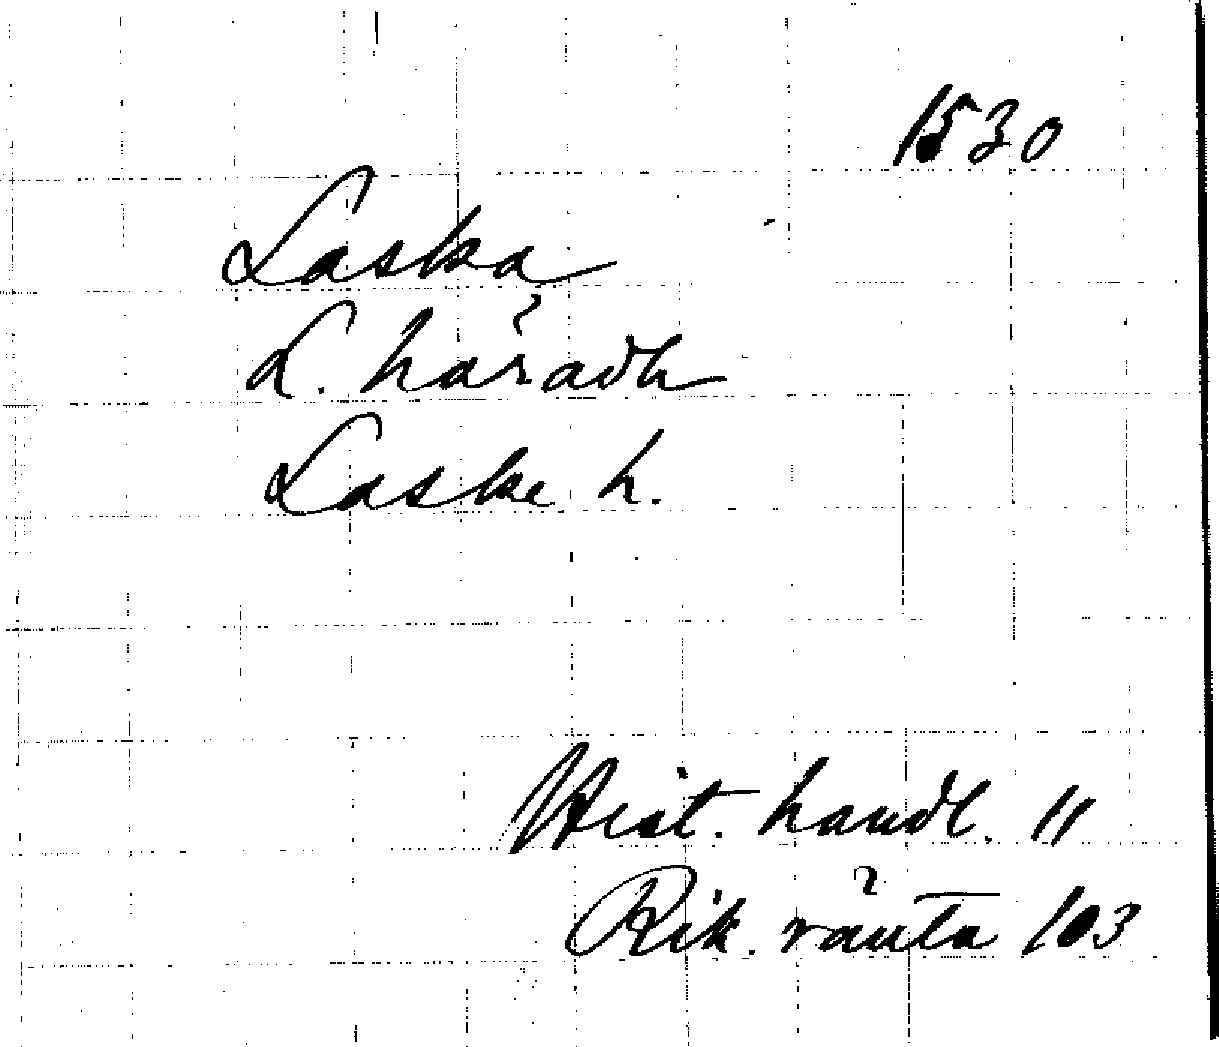 1530
Laska
L. häradh
Laske h.
Hist. handl. 11
Rik. ränta 103